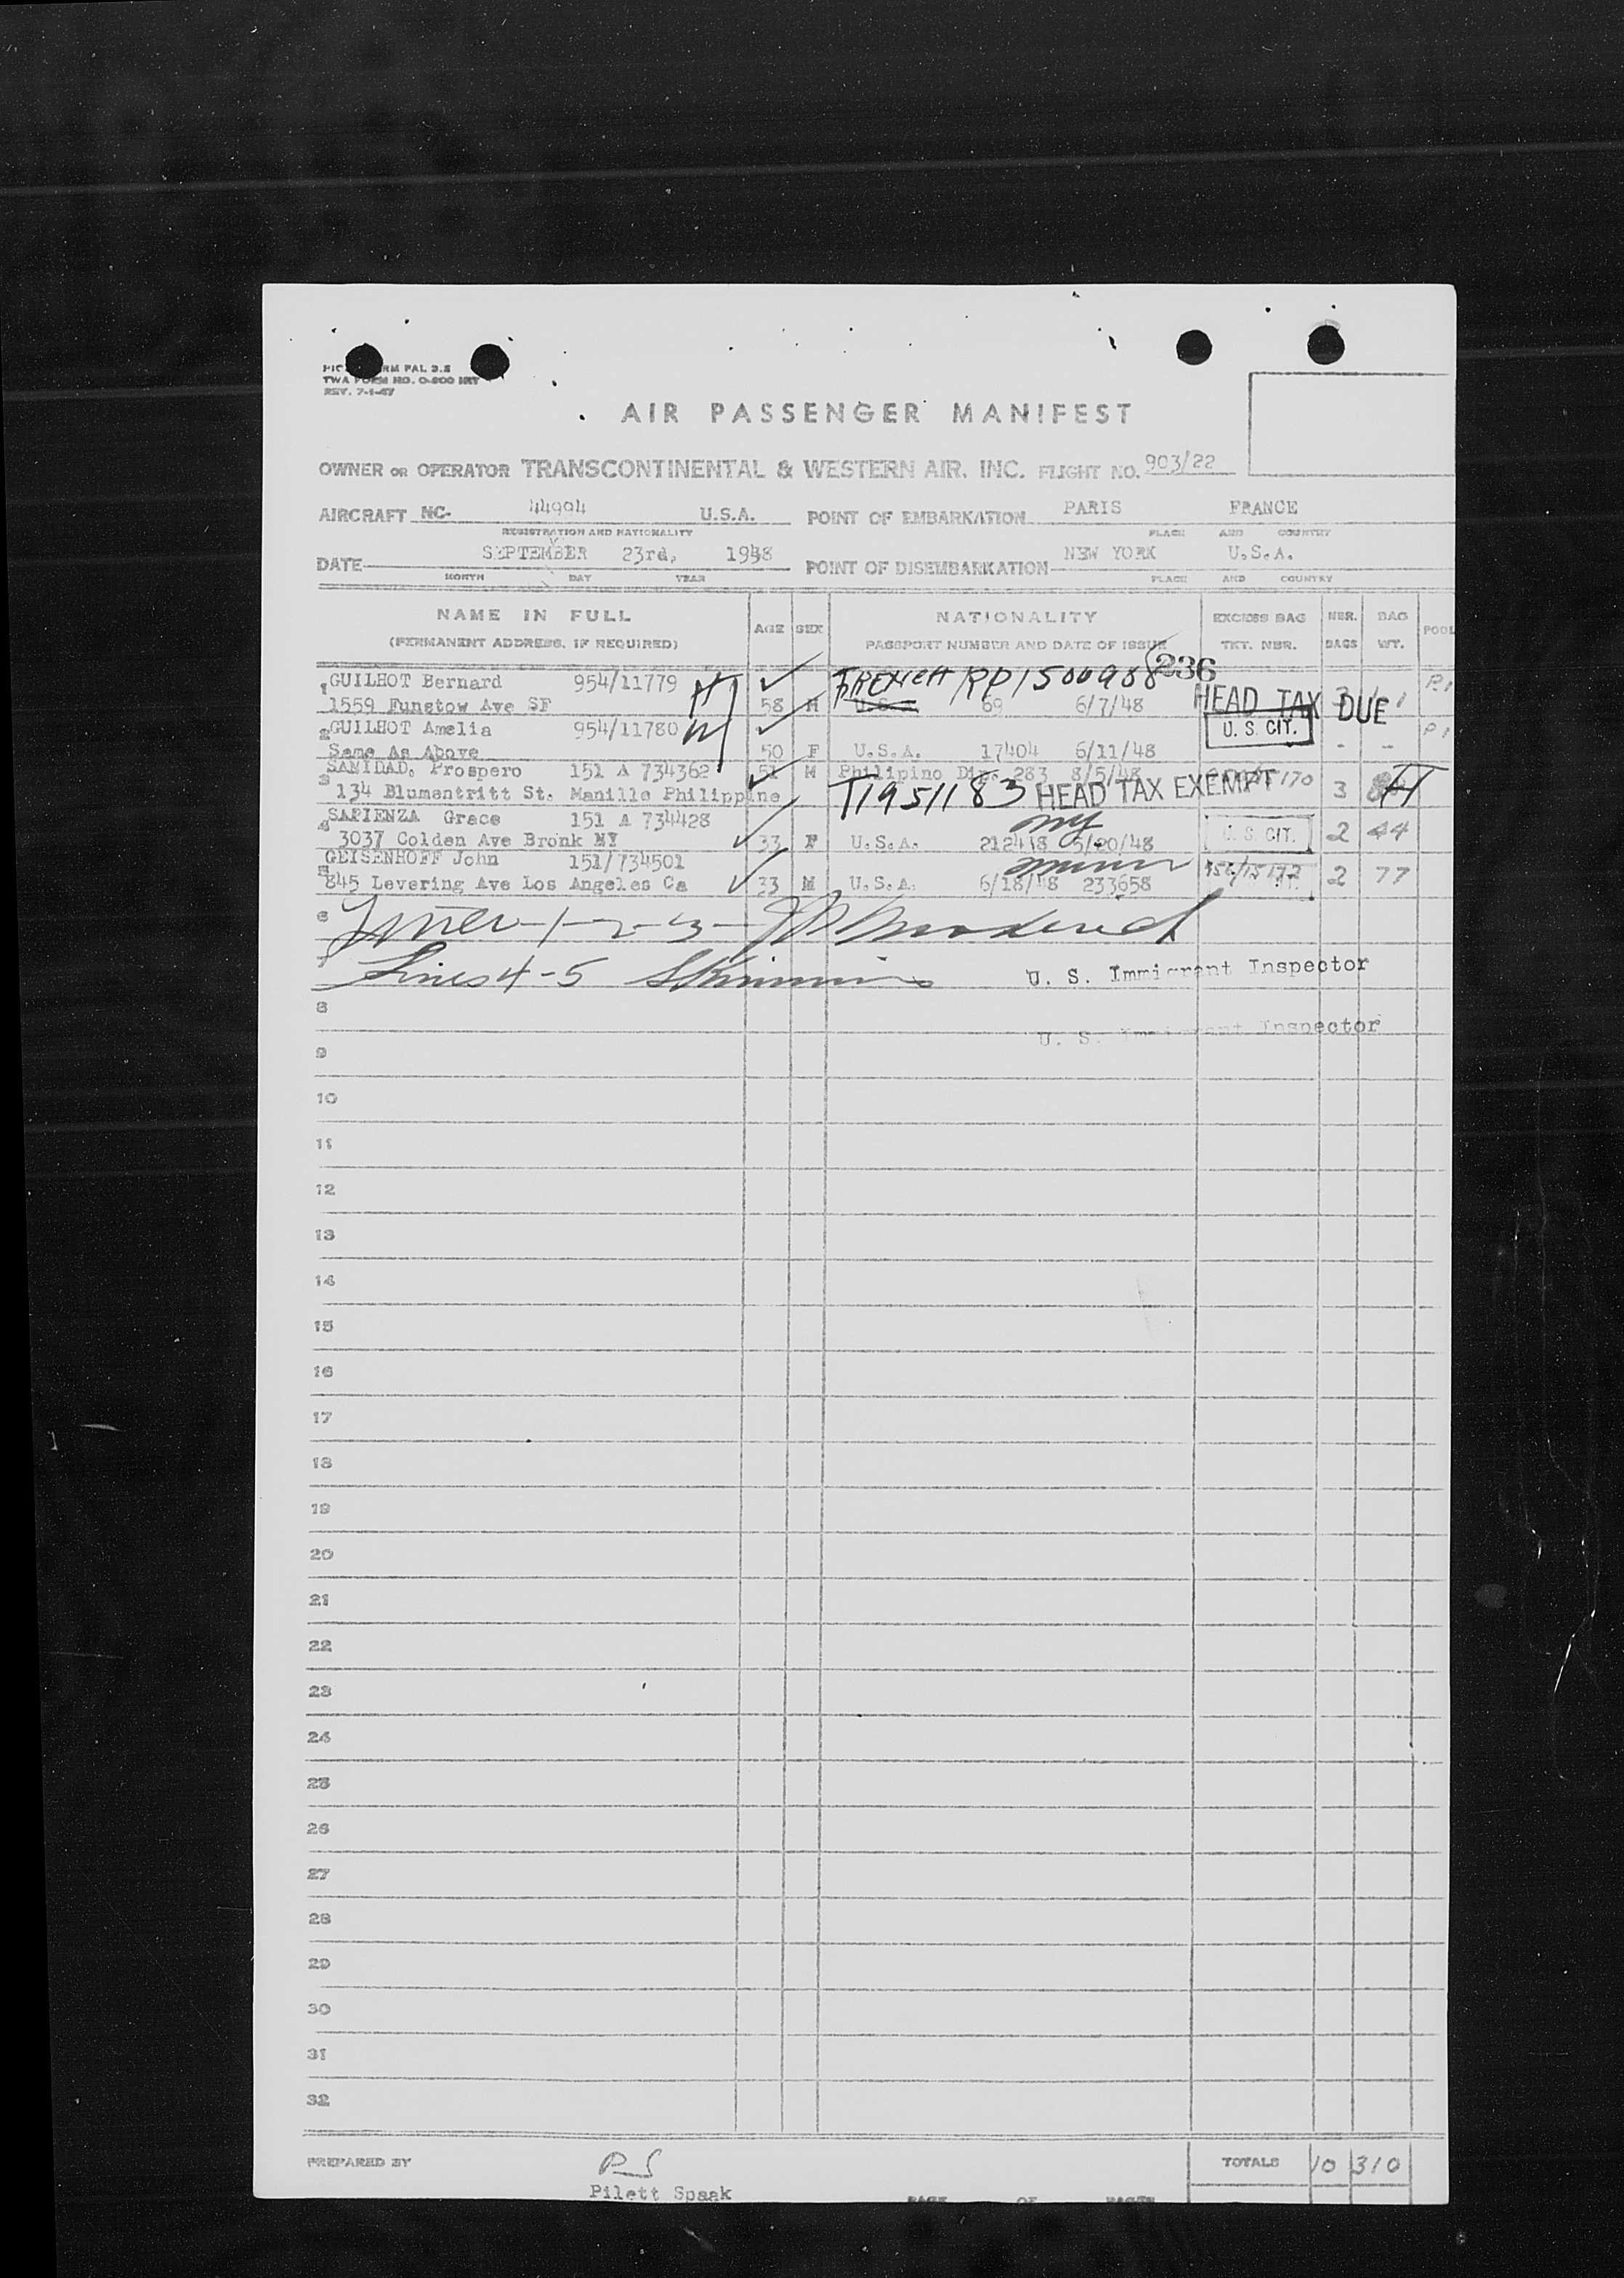 RM PAL 3.2
TWA FORM NO. O-800 INT
REV. 7-1-47
AIR PASSENGER MANIFEST
OWNER OR OPERATOR TRANSCONTINENTAL & WESTERN AIR, INC. FLIGHT NO. 903/22
AIRCRAFT NC- 44904 U.S.A. POINT OF EMBARKATION PARIS FRANCE
REGISTRATION AND NATIONALITY PLACE AND COUNTRY
DATE SEPTEMBER 23rd, 1948 POINT OF DISEMBARKATION NEW YORK U.S.A.
MONTH DAY YEAR PLACE AND COUNTRY
NAME IN FULL AGE SEX NATIONALITY EXCESS BAG NBR. BAG POOL
(PERMANENT ADDRESS, IF REQUIRED) PASSPORT NUMBER AND DATE OF ISSUE TKT. NBR. BAGS WT.
236
1 GUILHOT Bernard 954/11779 H FRENCH RP 1500988
1559 Funstow Ave SF 58 M U.S.A. 69 6/7/48 HEAD TAX DUE 3
2 GUILHOT Amelia 954/11780 W U. S. CIT.
Same As Above 50 F U.S.A. 17404 6/11/48 - -
3 SANIDAD, Prospero 151 A 734362 51 M Philipino Dip. 283 8/5/48
134 Blumentritt St. Manille Philippine T1951183 HEAD TAX EXEMPT 170 3
4 SAPIENZA Grace 151 A 734428 ny
3037 Colden Ave Bronk NY 33 F U.S.A. 212418 5/20/48 U. S. CIT. 2 44
5 GEISENHOFF John 151/734501
845 Levering Ave Los Angeles Ca 33 M U.S.A. 6/18/48 233658 2 77
6 Lines 1-2-3-
7 Lines 4-5 U. S. Immigrant Inspector
8
U. S. Immigrant Inspector
9
10
11
12
13
14
15
16
17
18
19
20
21
22
23
24
25
26
27
28
29
30
31
32
PREPARED BY PS TOTALS 10 310
Pilett Spaak PAGE OF PAGES